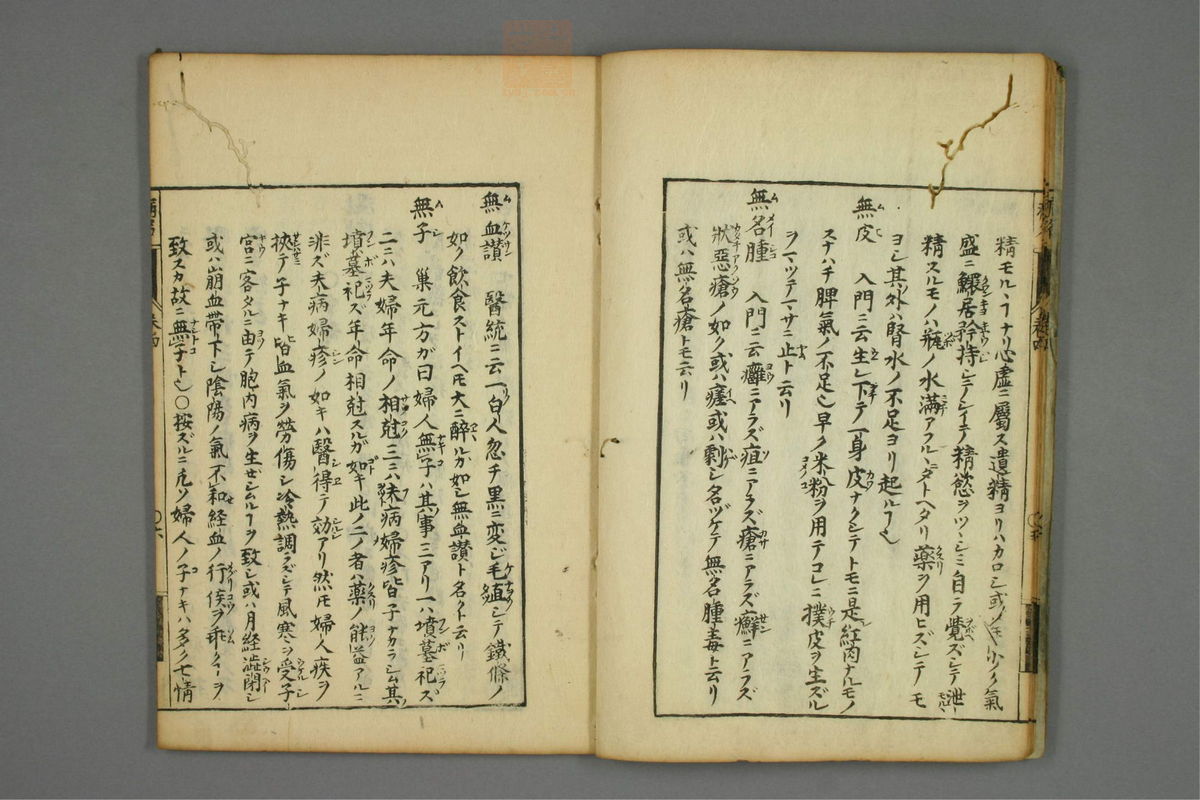 精モルヽヿナリ心虚ニ屬ス遺精ヨリハカロシ或ノ年少ク氣
盛ニ鰥居矜持シテシイテ精慾ヲツヽシミ自ラ覺ズシテ泄
精スルモノハ瓶ノ水滿アフルヽニタトヘタリ藥ヲ用ヒズシテモ
ヨシ其外ハ腎水ノ不足ヨリ起ルヿ也
無皮 入門ニ云生レ下テ一身皮ナクシテトモニ是紅肉ナルモノ
スナハチ脾氣ノ不足也早ク米粉ヲ用テコレニ撲皮ヲ生ズル
ヲマツテマサニ止ト云リ
無名腫 入門ニ云癰ニアラズ疽ニアラズ瘡ニアラズ癬ニアラズ
狀惡瘡ノ如ク或ハ瘥或ハ劇シ名ヅケテ無名腫毒ト云リ
或ハ無名瘡トモ云リ
無血讃 醫統ニ云一白人忽チ黒ニ変ジ毛殖シテ鐵條ノ
如ク飲食ストイヘモ大ニ醉ルガ如シ無血讃ト名クト云リ
無子 巢元方が曰婦人無子ハ其事三アリ一ハ墳墓祀ズ
二ニハ夫婦年命ノ相尅三ニハ夫病婦疹皆子ナカラシム其
墳墓祀ズ年命相尅スルガ如キ此ノ二ノ者ハ藥ノ能益アルニ
非ズ夫病婦疹ノ如キハ醫得テ効アリ然モ婦人疾ヲ
挾テ子ナキ皆血氣ヲ勞傷シ冷熱調ラズシテ風寒ヲ受子
宮ニ客タルニ由テ胞内病ヲ生ゼシムルヿヲ致シ或ハ月経澁閉シ
或ハ崩血帶下シ陰陽ノ氣不和経血ノ行候ヲ乖クヿヲ
致スカ故ニ無子ト也〇按ズルニ凡ソ婦人ノ子ナキハ多ク七情